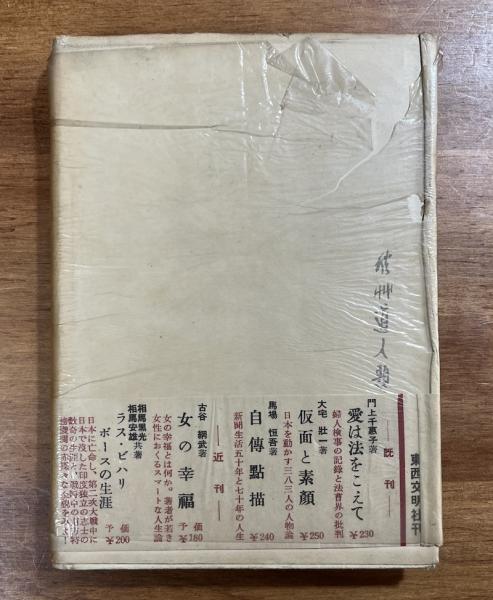 東西文明社刊
―既刊―
門上千惠子著
愛は法をこえて
婦人檢事の記錄と法曹界の批判
¥230
大宅 壯一著
仮面と素顔
日本を動かす三八三人の人物論
¥250
馬場 恒吾著
自傳點描
新聞生活五十年と七十年の人生
¥240
―近刊―
古谷 綱武著
女の幸福
女の幸福とは何か。著者が若き
女性におくるスマートな人生論
予価 ¥180
相馬黒光
相馬安雄共著
ラス・ビハリ
ボースの生涯
日本に亡命し、第二次大戰中に
日本で沒した印度獨立の志士の
予価 ¥200